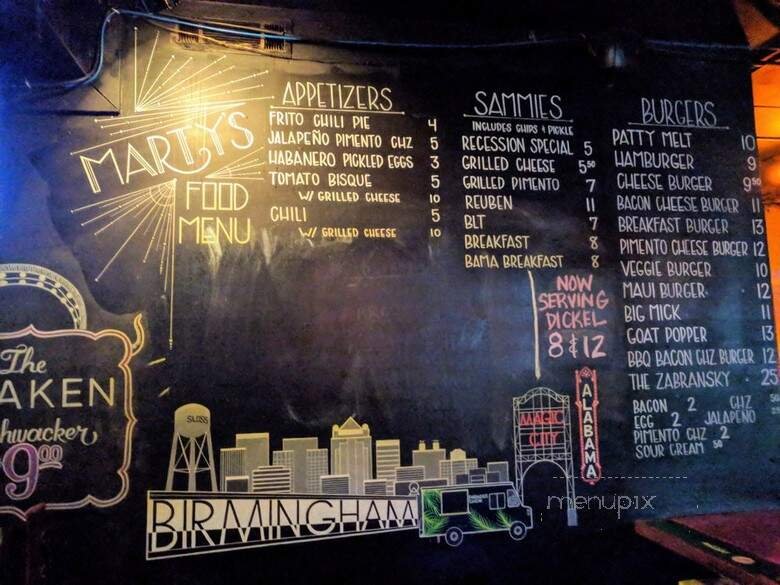 MARTY'S
FOOD
MENU
APPETIZERS
FRITO CHILI PIE 4
JALAPEÑO PIMENTO CHZ 5
HABANERO PICKLED EGGS 3
TOMATO BISQUE 5
W/ GRILLED CHEESE 10
CHILI 5
W/ GRILLED CHEESE 10
SAMMIES
INCLUDES CHIPS & PICKLE
RECESSION SPECIAL 5
GRILLED CHEESE 5.50
GRILLED PIMENTO 7
REUBEN 11
BLT 7
BREAKFAST 8
BAMA BREAKFAST 8
NOW
SERVING
DICKEL
8 & 12
BURGERS
PATTY MELT 10
HAMBURGER 9
CHEESE BURGER 9.50
BACON CHEESE BURGER 11
BREAKFAST BURGER 13
PIMENTO CHEESE BURGER 12
VEGGIE BURGER 10
MAUI BURGER 12
BIG MICK 11
GOAT POPPER 13
BBQ BACON CHZ BURGER 12
THE ZABRANSKY 25
BACON 2 CHZ 50
EGG 2 JALAPEÑO
PIMENTO CHZ 2
SOUR CREAM 50
The
AKEN
hwacker
9.00
SLOSS
MAGIC
CITY
ALABAMA
BIRMINGHAM
menupix